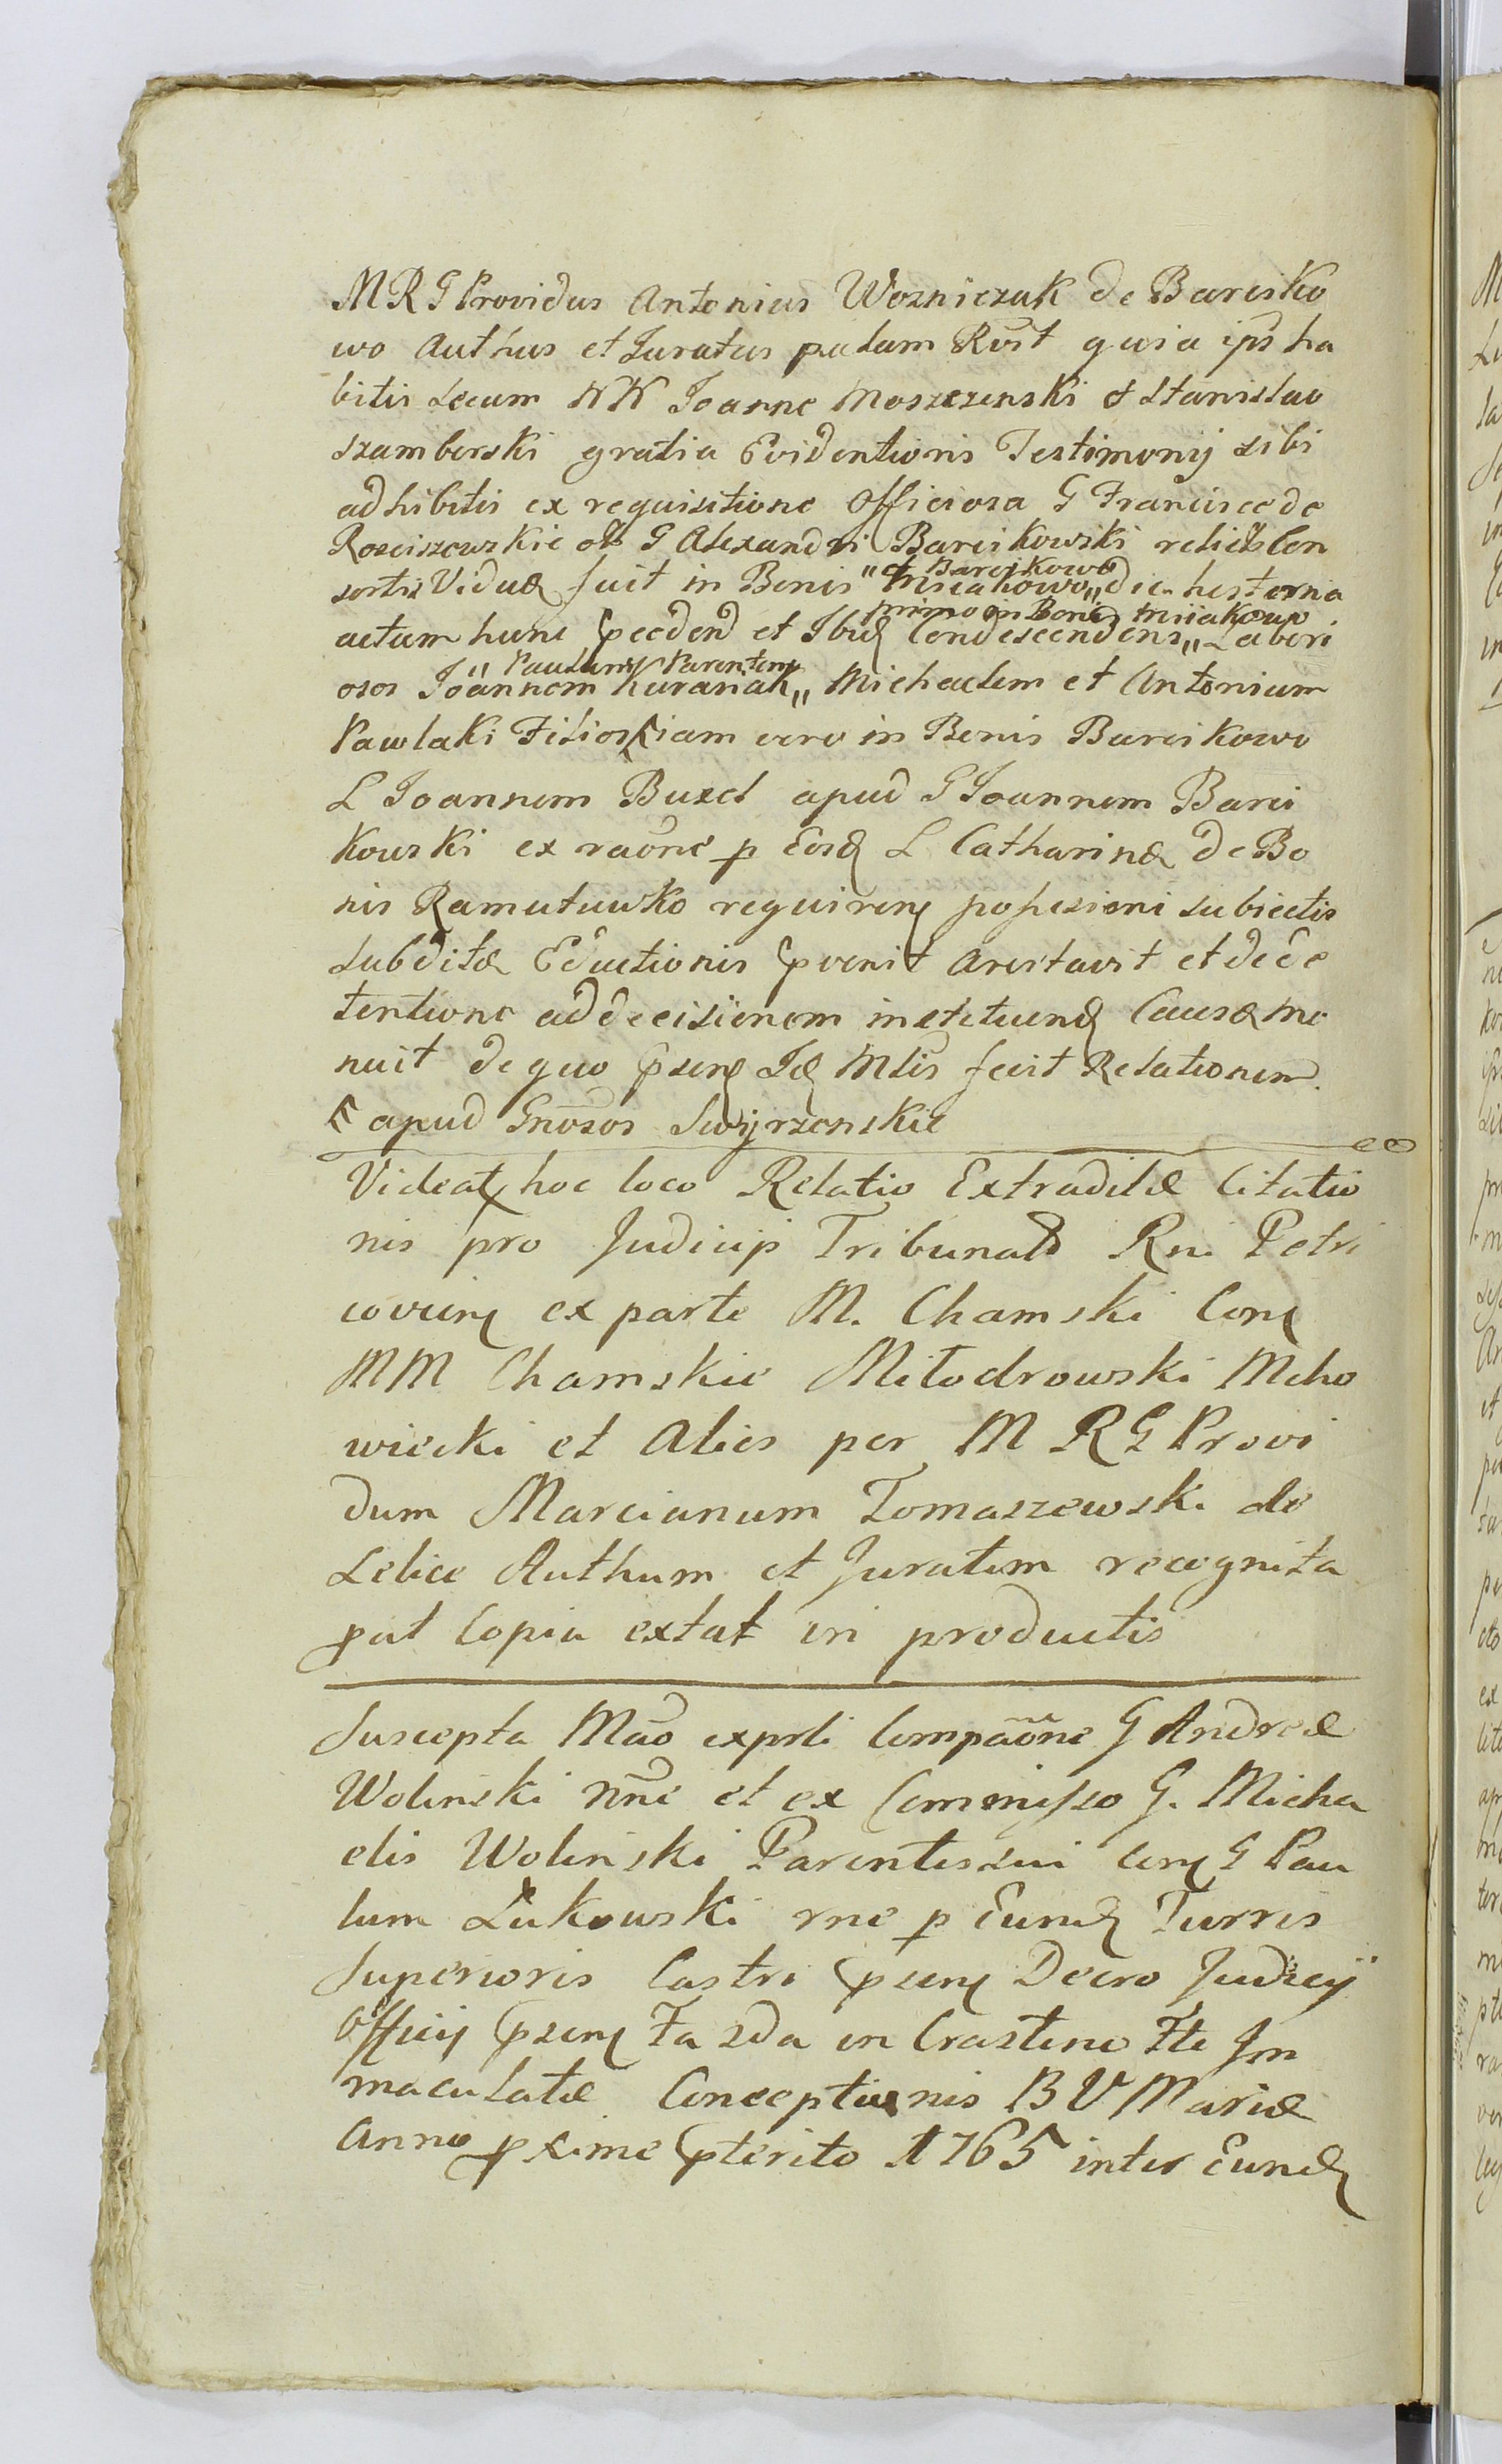 M R G Providus Antonius Wozniczak de Barcisko
wo Authus et Juratus palam Rvt quia ips ha
bitis secum NN Joanne Moszczenski et Stanislao
Szamborski gratia Evidentioris Testimonij sibi
adhibitis ex requisitione officiosa G Franciscæ de
Rosciszewskie ol G Alexandri Barcikowski relictæ Con
sortis Viduæ fuit in Bonis " et Barcikowo
Misiakowo " die hesterna
actum hunc pcedend et Ibid Condescendens " primo in Bonis Misiakowo
Labori
osos Joannem Kuraniak " Paulum Parentem
Michaelem et Antonium
Pawlaki Filios iam vero in Bonis Barcikowo
L Joannem Buxel apud G Joannem Barci
kowski ex raone p Eosd L Catharinæ de Bo
nis Ramutuwko requiren possesioni subiectis
subditæ Eductionis pvenit arestavit et de de
tentione ad decisionem instituend Causæ mo
nuit de quo psens Id Mlis fecit Relationem.
apud Gnosos Swyrzenskie
Videat hoc loco Relatio Extraditæ Citatio
nis pro Judicijs Tribunal Rni Petri
covien ex parte M. Chamski Con
MM Chamskie Miłodrowski Mcho
wiecki et Alios per M R G Provi
dum Marcianum Tomaszewski de
Lelice Authum et Juratum recognita
put Copia extat in productis
Suscepta Mao exprli Compaone G Andreæ
Wolinski nne et ex Commisso G. Micha
elis Wolinski Parentis sui con G Pau
lum Łukowski rne p Eund Turris
Superioris Castri psen Decro Judicij
Officij psen Fa 2da in Crastino Fti Im
maculatæ Conceptionis B V Mariæ
Anno pxime pterito 1765 inter Eund